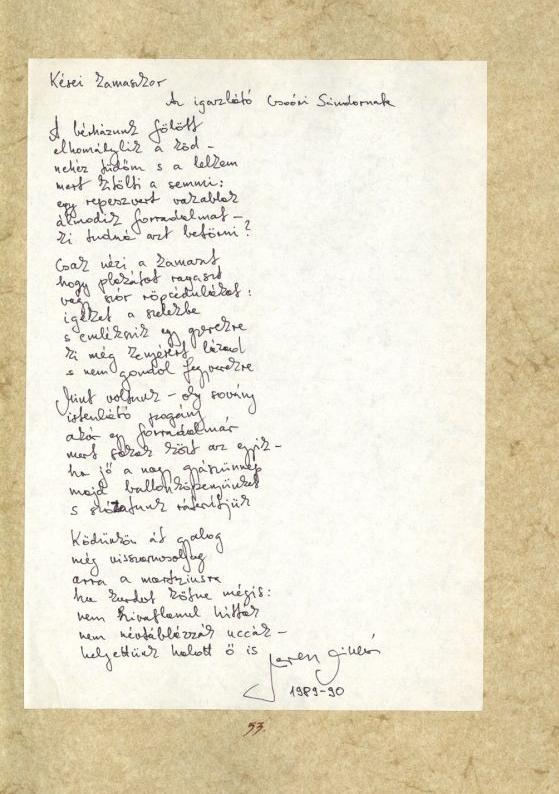 Kései kamaszkor
Az igazlátó Csoóri Sándornak
A bérházunk fölött
elhomálylik a köd –
nehéz tüdőm s a lelkem
mert kitölti a semmi:
egy repeszvert vakablak
álmodik forradalmat –
ki tudná azt betörni?
Csak nézi a kamaszt
hogy plakátot ragaszt
vagy szór röpcédulákat:
igéket a szelekbe
s emlékszik egy gyerekre
ki még kenyérért lázad
s nem gondol fegyverekre
Mint voltunk – oly sovány
istenlátó pogány
akár egy forradalmár
mert sokak közt az egyik –
ha jő a nagy gyászünnep
majd ballonköpenyünket
s ráterítjük
Ködünkön át gyalog
még visszamosolyog
arra a márciusra
ha kardot kötne mégis:
nem hivatlanul hittak
nem névtáblázzák uccák –
helyettünk halott ő is
1989-90
53.